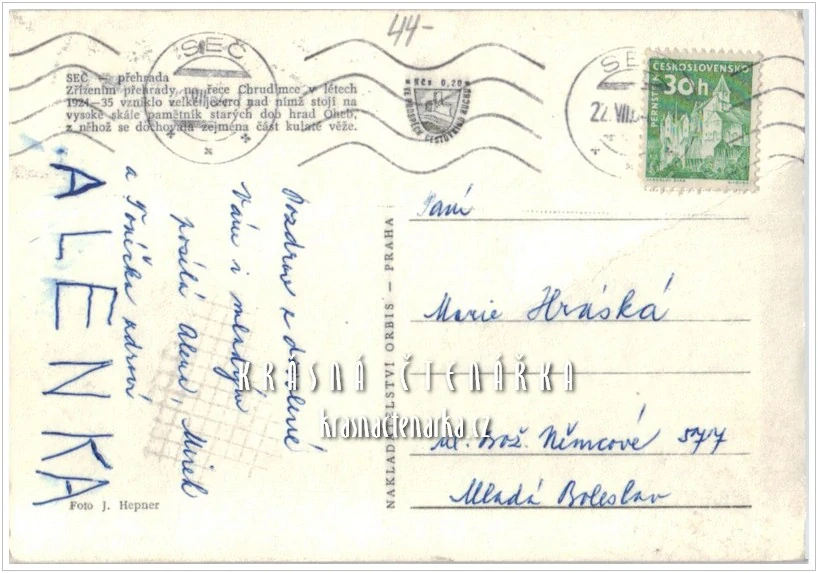 44-
SEČ
SEČ — přehrada
Zřízením přehrady na řece Chrudimce v létech
1924—35 vzniklo velké jezero nad nímž stojí na
vysoké skále památník starých dob hrad Oheb,
z něhož se dochovala zejména část kulaté věže.
Kčs 0,20
SEČ
22. VII.
ČESKOSLOVENSKO
30 h
PERNŠTEJN
Pozdrav z dovolené
Vám i mladým
posílá Alena, Mirek
a Tonička zdraví
ALENKA
Foto J. Hepner
NAKLADATELSTVÍ ORBIS — PRAHA
Paní
Marie Hráská
ul. Bož. Němcové 577
Mladá Boleslav
KRÁSNÁ ČTENÁŘKA
krasnactenarka.cz